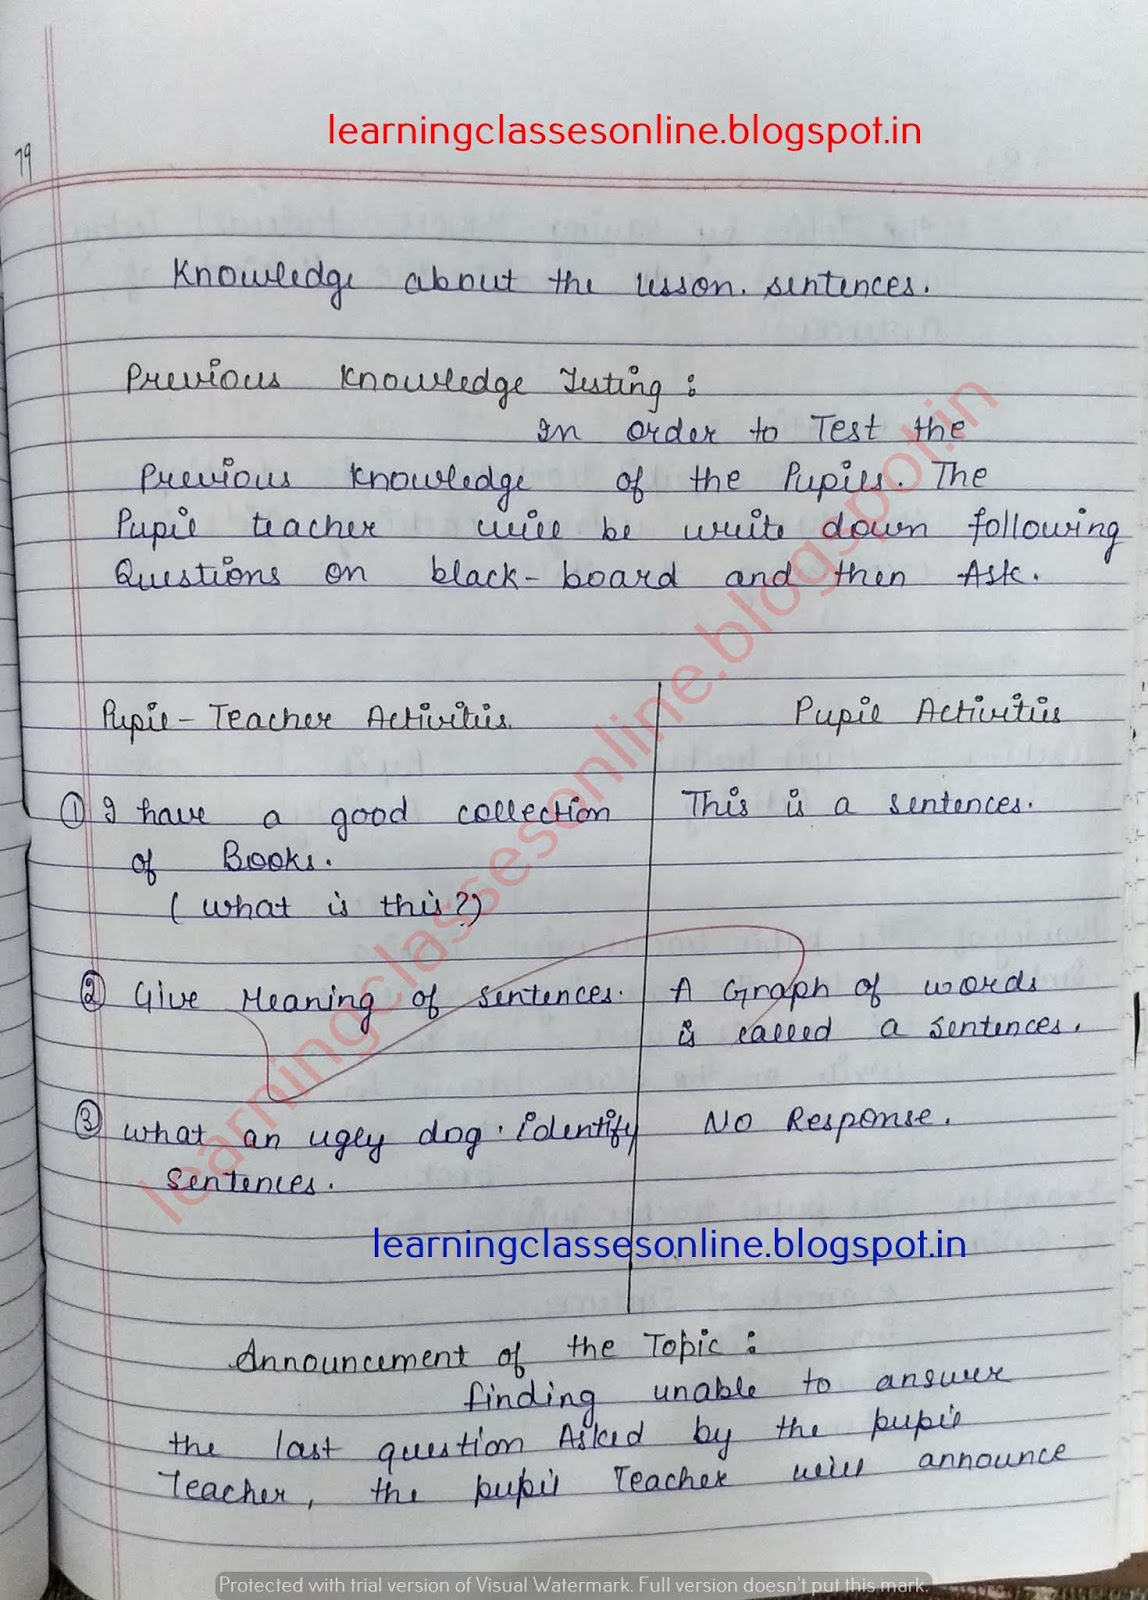 learningclassesonline.blogspot.in
79
Knowledge about the lesson. sentences.
Previous Knowledge Testing :
In order to Test the
Previous Knowledge of the Pupils. The
Pupil teacher will be write down following
Questions on black-board and then Ask.
Pupil-Teacher Activities. Pupil Activities
① I have a good collection This is a sentences.
of Books.
(what is this?)
② Give Meaning of sentences. A Graph of words
is called a sentences.
③ what an ugly dog. identify No Response.
Sentences.
learningclassesonline.blogspot.in
learningclassesonline.blogspot.in
Announcement of the Topic :
finding unable to answer
the last question Asked by the pupil
Teacher, the pupil Teacher will announce
Protected with trial version of Visual Watermark. Full version doesn't put this mark.